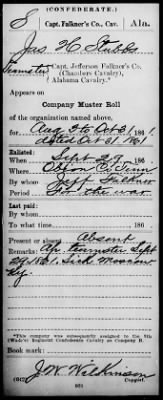 (CONFEDERATE.)
S Capt. Falkner's Co., Cav. Ala.
Jas H Stubbs
Teamster, Capt. Jefferson Falkner's Co.
(Chambers Cavalry),
Alabama Cavalry.*
Appears on
Company Muster Roll
of the organization named above,
for Aug 2 to Oct 31, 1861.
dated Oct 31 1861
Enlisted:
When Sept 29, 186
Where
By whom Jeff Falkner
Period For the war
Last paid:
By whom
To what time , 186
Present or absent Absent
Remarks: Ap. Teamster Sept
1861. Sick
Ky.
*This company was subsequently assigned to the 8th
Regiment Confederate Cavalry as Company
Book mark:
J W Wilkinson
(642) Copyist.